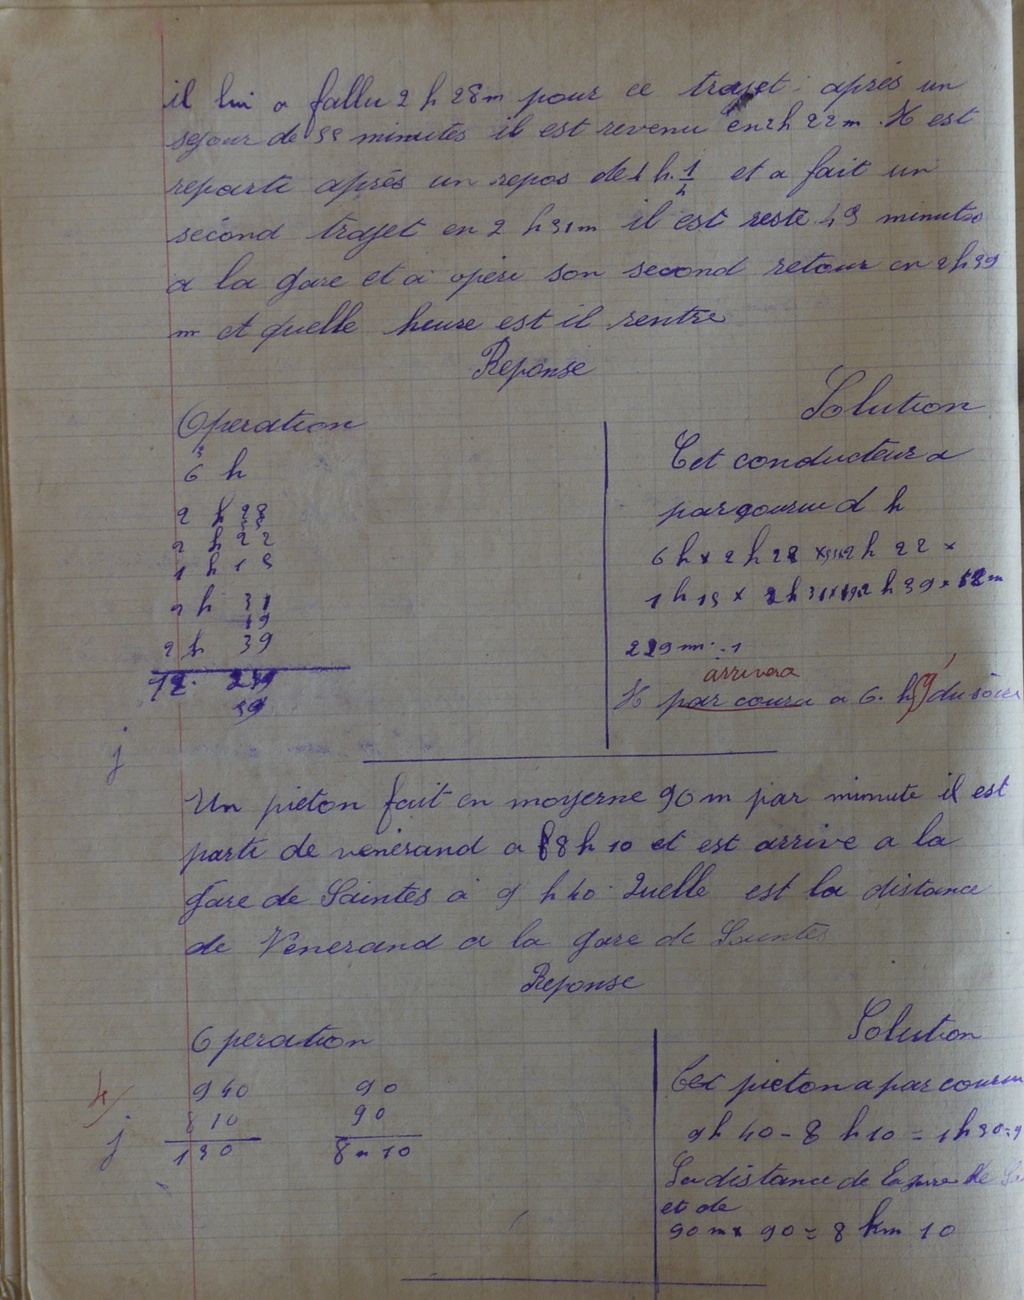 il lui a fallu 2 h 28 m pour ce trajet. après un
sejour de 55 minutes il est revenu en 2h 22 m. Il est
reparti après un repos de 1 h. 1/4 et a fait un
sécond trajet en 2 h 31 m il est reste 49 minutes
a la gare et a opére son second retour en 2h 39
m A quelle heure est il rentre
Reponse
Operation
Solution
6 h
2 h 28
55
2 h 22
1 h 15
2 h 31
49
2 h 39
12. 239
59
Cet conducteur a
6 h x 2 h 28 x 55 x 2 h 22 x
1 h 15 x 2 h 31 x 49 x 2 h 39 x
arrivera
Il par couru a 6. h 59 du soir
j
Un pieton fait en moyenne 90 m par minute il est
parti de venerand a 8 h 10 et est arrive a la
gare de Saintes à 9 h 40. Quelle est la distance
de Venerand a la gare de Saintes
Reponse
Operation
Solution
940
810
130
90
90
8 10
j
Cet pieton a par couru
9h 40 - 8 h 10 = 1 h 30 =
La distance de la gare de
et de
90 m x 90 = 8 km 10